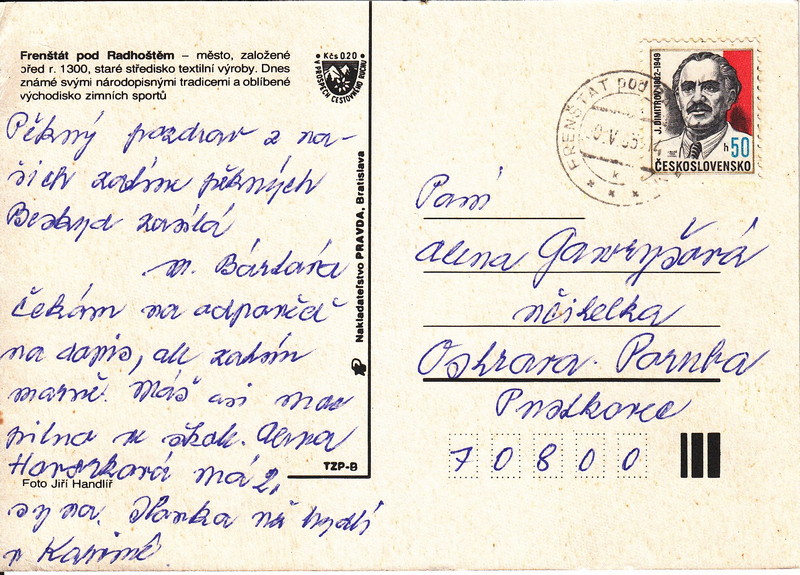 Frenštát pod Radhoštěm – město, založené
před r. 1300, staré středisko textilní výroby. Dnes
známé svými národopisnými tradicemi a oblíbené
východisko zimních sportů
Kčs 0.20
V PROSPĚCH CESTOVNÉHO RUCHU
Pěkný pozdrav z na-
šich zatím pěkných
Beskyd zasílá
M. Bártová
Čekám na odpověď
na dopis, ale zatím
marně. Máš asi moc
pilno ve škol.
má 2.
syna. Hanka
v Karviné.
Foto Jiří Handlíř
TZP-B
Nakladateľstvo PRAVDA, Bratislava
FRENŠTÁT pod
J. DIMITROV 1882-1949
h 50
ČESKOSLOVENSKO
Paní
Alena Gawryšová
učitelka
Ostrava-Poruba
Pustkovec
70800